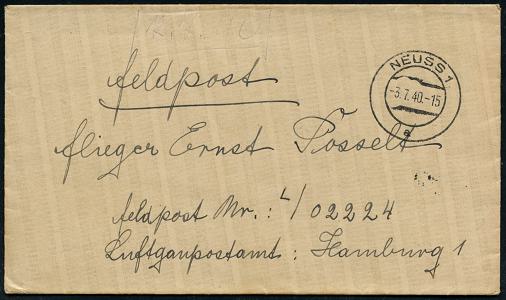 Feldpost
NEUSS 1
-3.7.40.-15
a
Flieger Ernst Posselt
Feldpost Nr.: L/02224
Luftgaupostamt: Hamburg 1